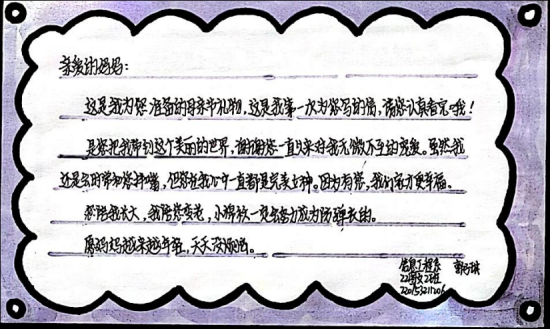 亲爱的妈妈：
这是我为您准备的母亲节礼物，这是我第一次为您写的信，请您认真看完哦！
是您把我带到这个美丽的世界，谢谢您一直以来对我无微不至的宠爱。虽然我
还是会时常和您拌嘴，但您在我心中一直都是完美女神。因为有您，我们家才更幸福。
您陪我长大，我陪您变老，小棉袄一定会努力成为防弹衣的。
愿妈妈越来越年轻，天天没烦恼。
信息工程系